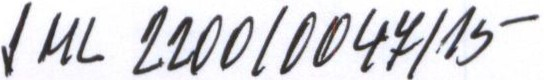 1 ML 2200/0047/15